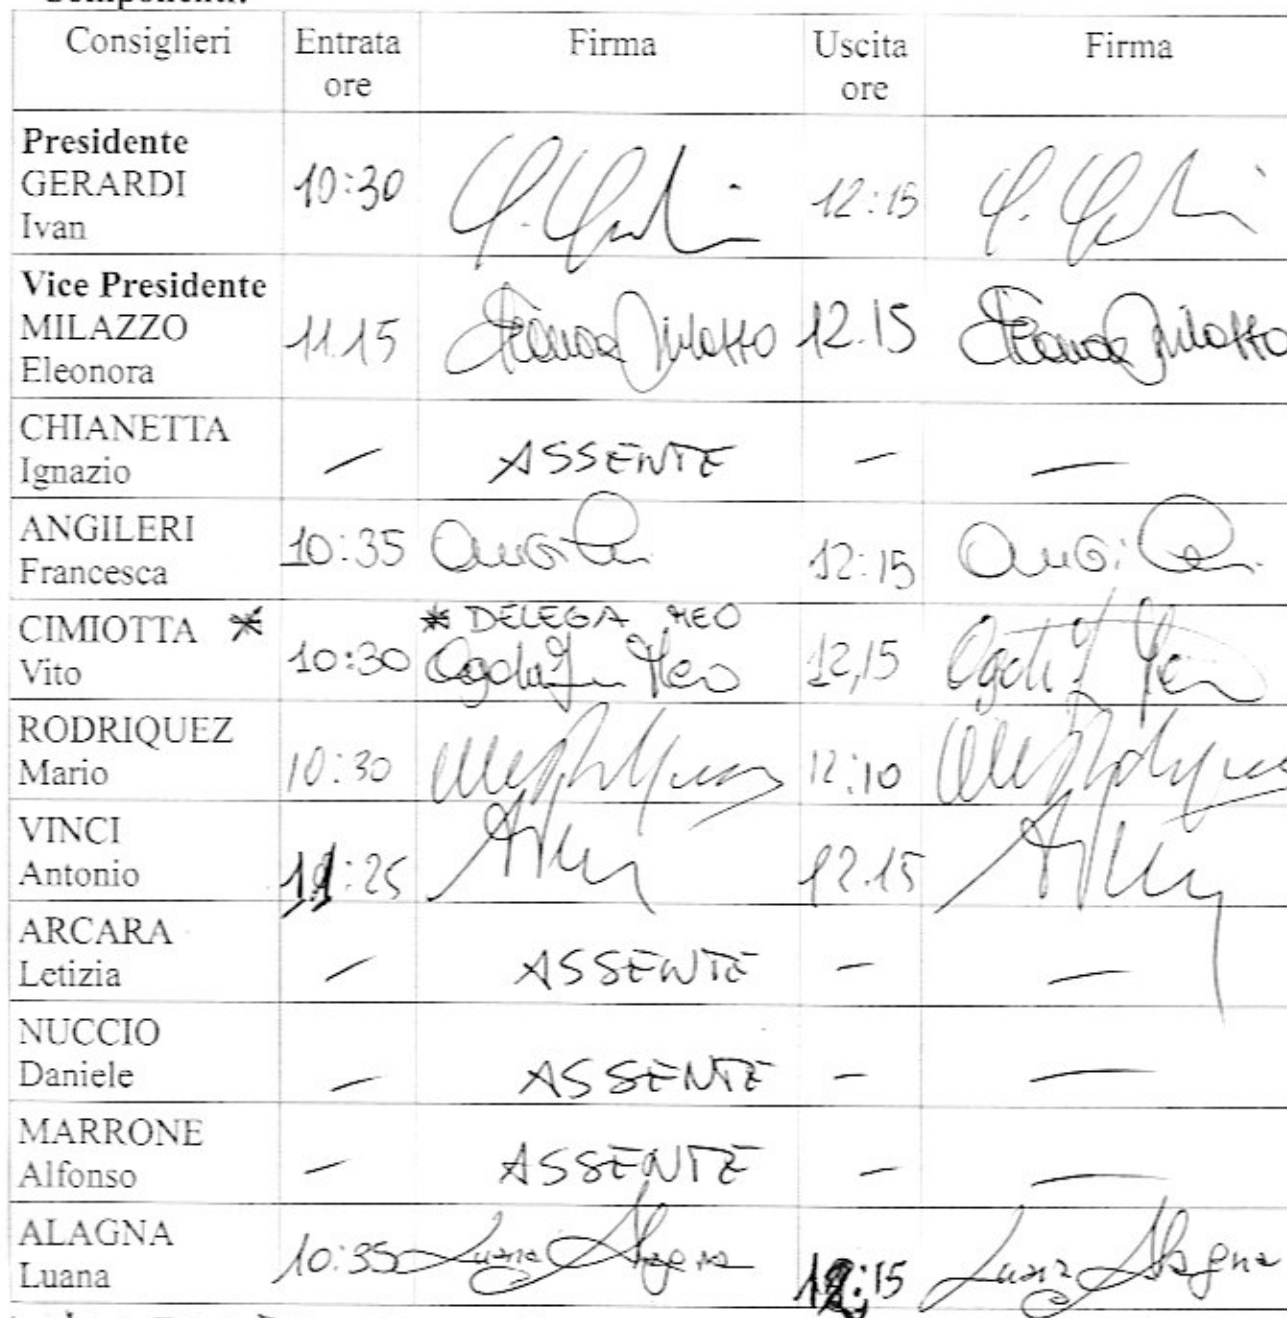 Componenti:
Consiglieri Entrata ore Firma Uscita ore Firma
Presidente
GERARDI
Ivan
10:30 12:15
Vice Presidente
MILAZZO
Eleonora
11.15 Eleonora Milazzo 12.15 Eleonora Milazzo
CHIANETTA
Ignazio
— ASSENTE — —
ANGILERI
Francesca
10:35 12:15
CIMIOTTA *
Vito
* DELEGA MEO
10:30 Meo 12,15 Meo
RODRIQUEZ
Mario
10:30 12:10
VINCI
Antonio
11:25 12.15
ARCARA
Letizia
— ASSENTE — —
NUCCIO
Daniele
— ASSENTE — —
MARRONE
Alfonso
— ASSENTE — —
ALAGNA
Luana
10:35 Luana Alagna 12:15 Luana Alagna